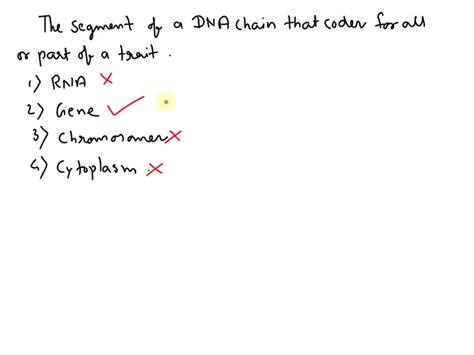 The segment of a DNA chain that coder for all
or part of a trait.
1) RNA ×
2) Gene ✓
3) Chromosomer ×
4) Cytoplasm ×